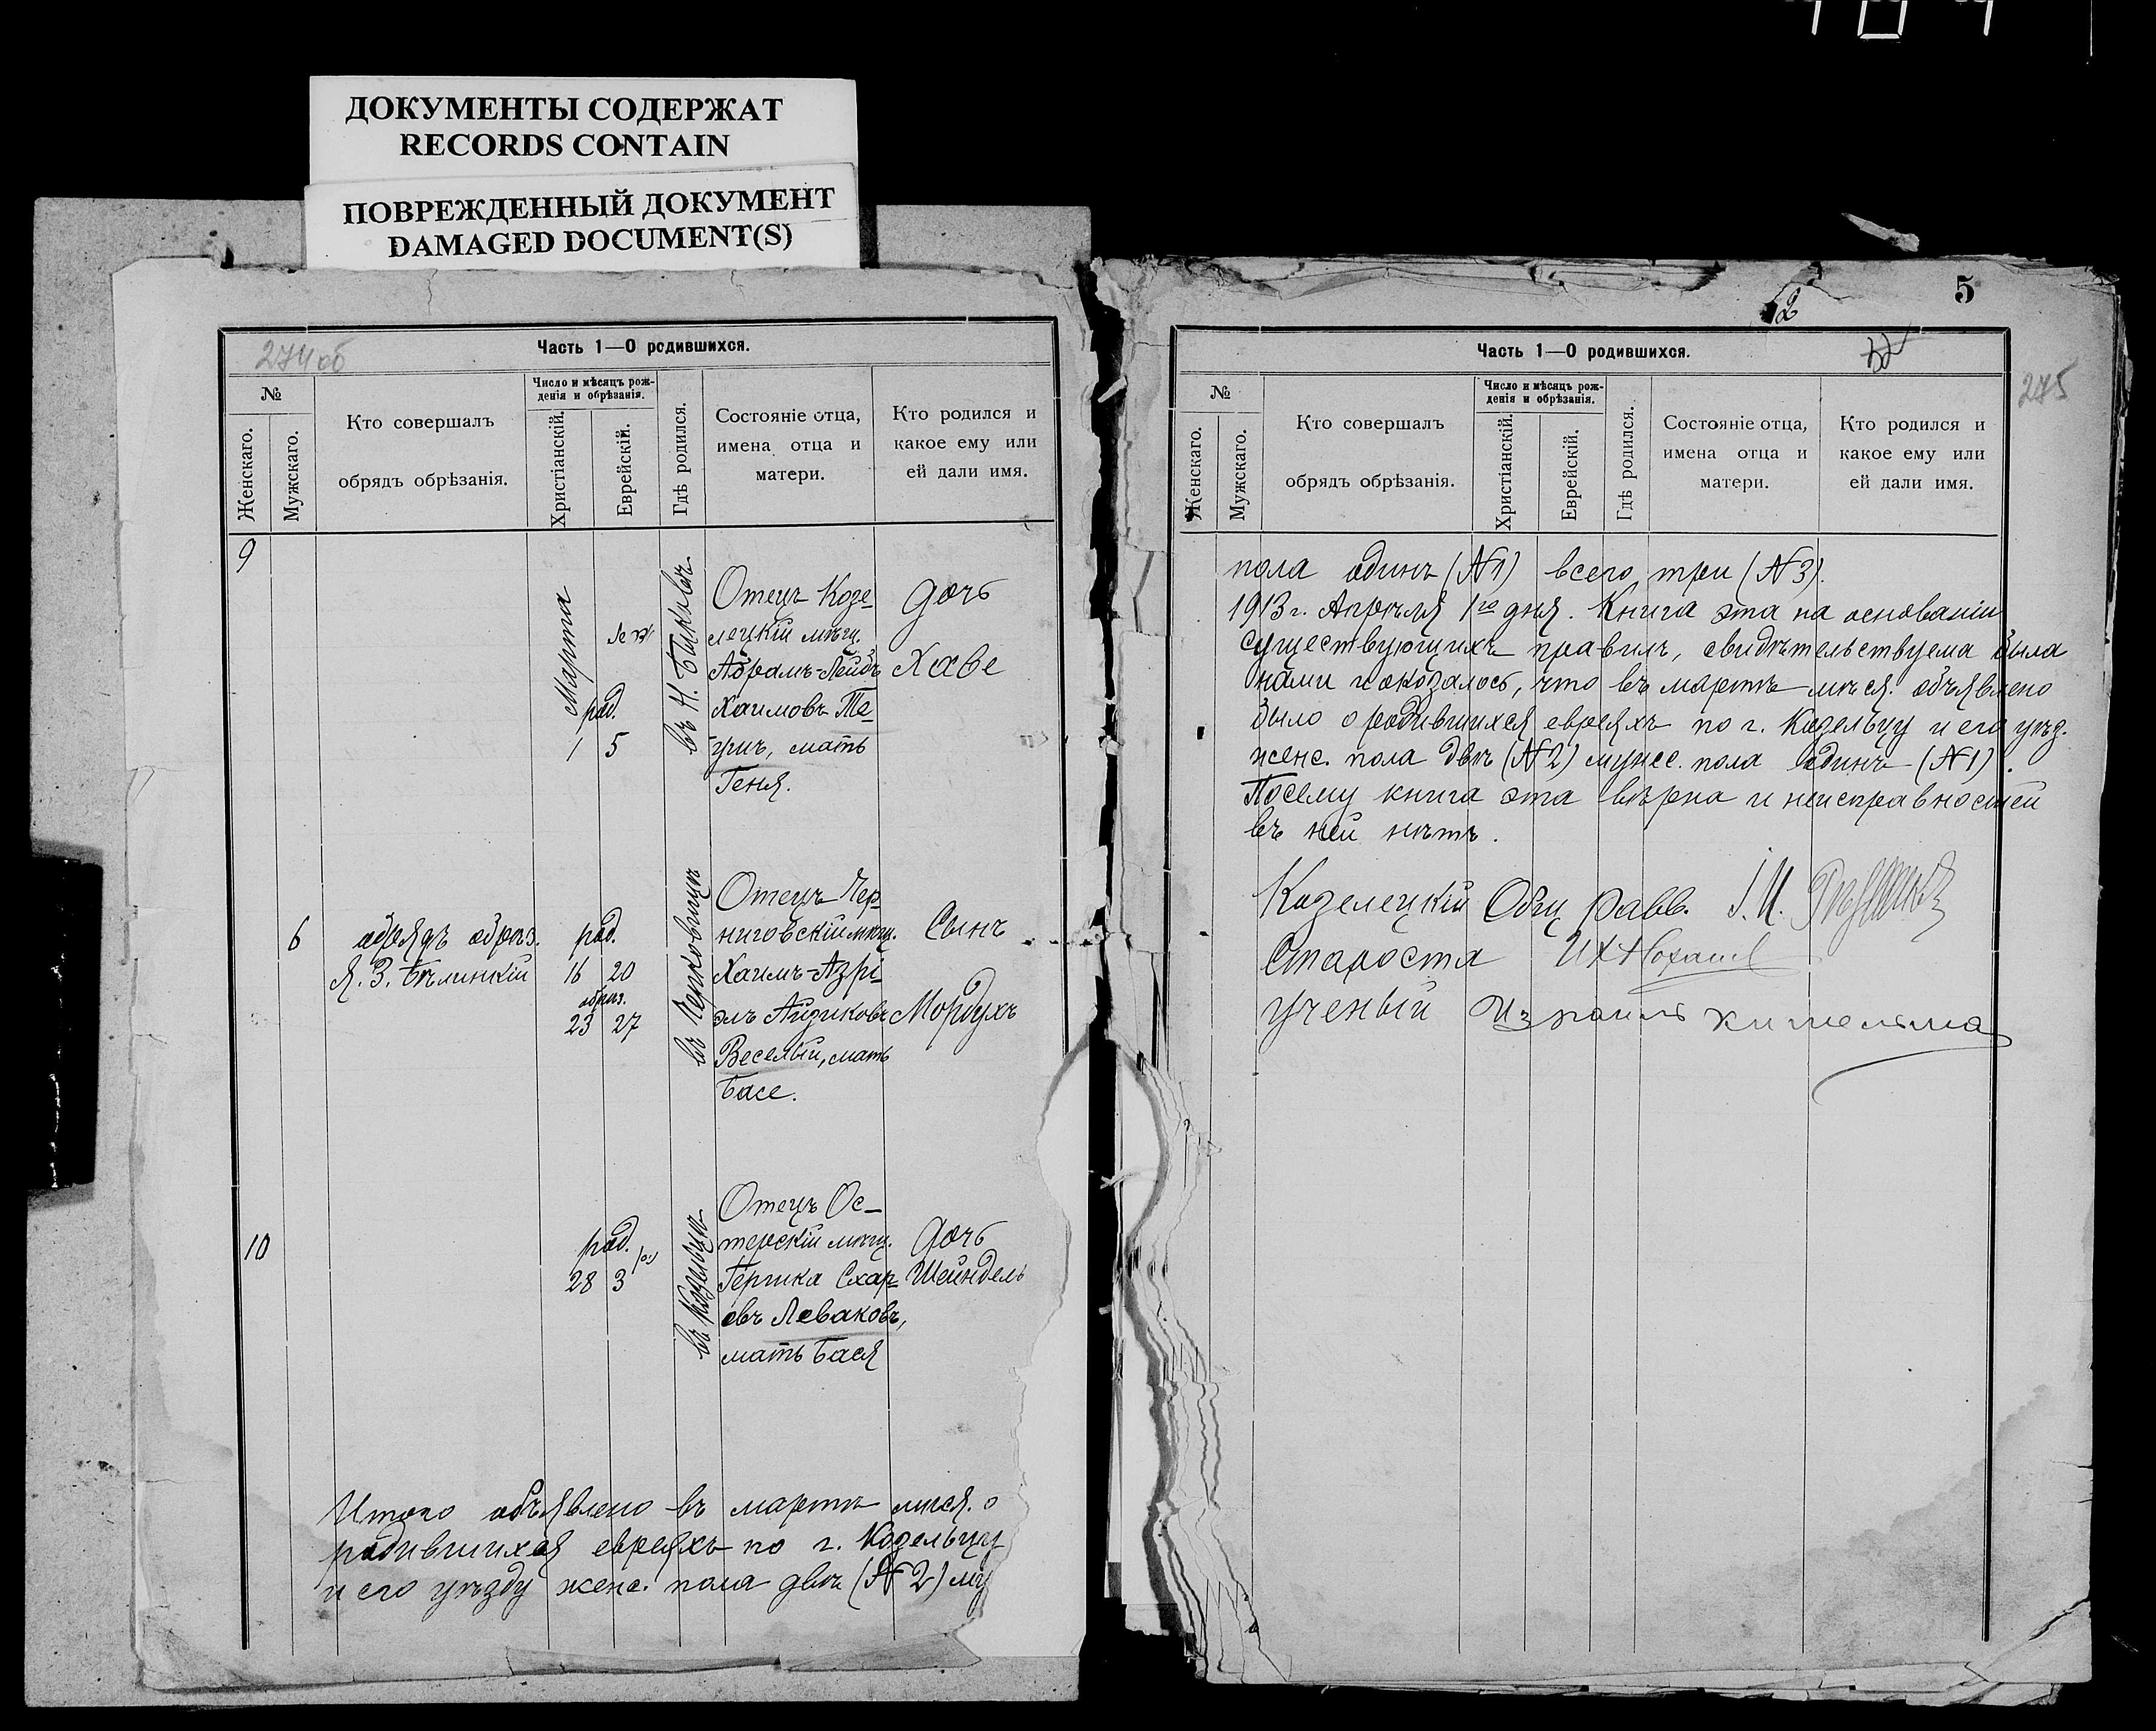 ДОКУМЕНТЫ СОДЕРЖАТ
RECORDS CONTAIN
ПОВРЕЖДЕННЫЙ ДОКУМЕНТ
DAMAGED DOCUMENT(S)
274 об
Часть 1—О родившихся.
№
Женскаго.
Мужскаго.
Кто совершалъ
обрядъ обрѣзанія.
Число и мѣсяцъ рож-
денія и обрѣзанія.
Христіанскій.
Еврейскій.
Гдѣ родился.
Состояніе отца,
имена отца и
матери.
Кто родился и
какое ему или
ей дали имя.
9
Марта
род.
1 5
въ Н. Быковѣ
Отецъ Козе-
лецкій мѣщ.
Абрамъ-Лейбъ
Хаимовъ
мать
Геня.
дочь
Хаве
6
обрядъ обрѣз.
Я. З. Бѣлинкій
род.
16 20
обрѣз.
23 27
Отецъ Чер-
ниговскій мѣщ.
Хаимъ-Азрі-
элъ Айзиковъ
Веселый, мать
Басе.
Сынъ
Мордухъ
10
род.
28 3
въ Козельцѣ
Отецъ Ос-
терскій мѣщ.
Гершка Схар-
овъ Леваковъ,
мать Бася
дочь
Шейндель
Итого объявлено въ мартѣ мѣся. о
родившихся евреяхъ по г. Козельцу
и его уѣзду женс. пола двѣ (№ 2) му
2
5
275
Часть 1—О родившихся.
№
Женскаго.
Мужскаго.
Кто совершалъ
обрядъ обрѣзанія.
Число и мѣсяцъ рож-
денія и обрѣзанія.
Христіанскій.
Еврейскій.
Гдѣ родился.
Состояніе отца,
имена отца и
матери.
Кто родился и
какое ему или
ей дали имя.
пола одинъ (№ 1) всего три (№ 3).
1913 г. Апрѣля 1го дня. Книга эта на основаніи
существующихъ правилъ, свидѣтельствуема была
нами и оказалось, что въ мартѣ мѣся. объявлено
было о родившихся евреяхъ по г. Козельцу и его уѣз.
женс. пола двѣ (№ 2) мужес. пола одинъ (№ 1).
Посему книга эта вѣрна и неисправностей
въ ней нѣтъ.
Козелецкій Общ. равв. І. И.
Староста
Ученый Израиль